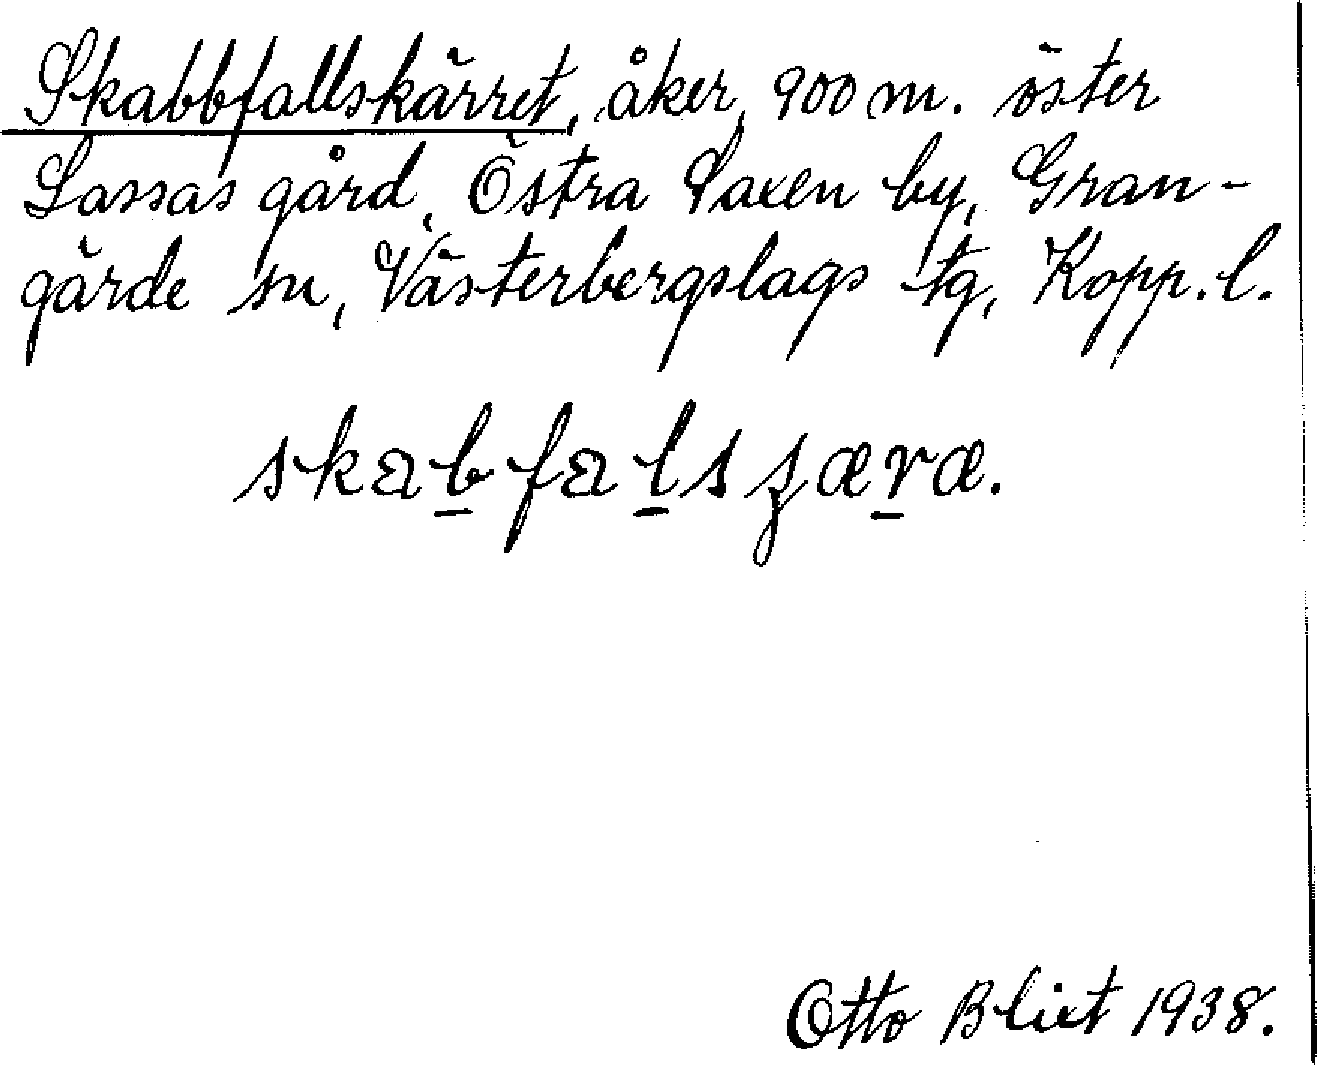 Skabbfallskärret, åker, 900 m. öster
Lassas gård, Östra Saxen by, Gran-
gärde sn, Västerbergslags tg, Kopp. l.
skabfalsʂæræ.
Otto Blixt 1938.